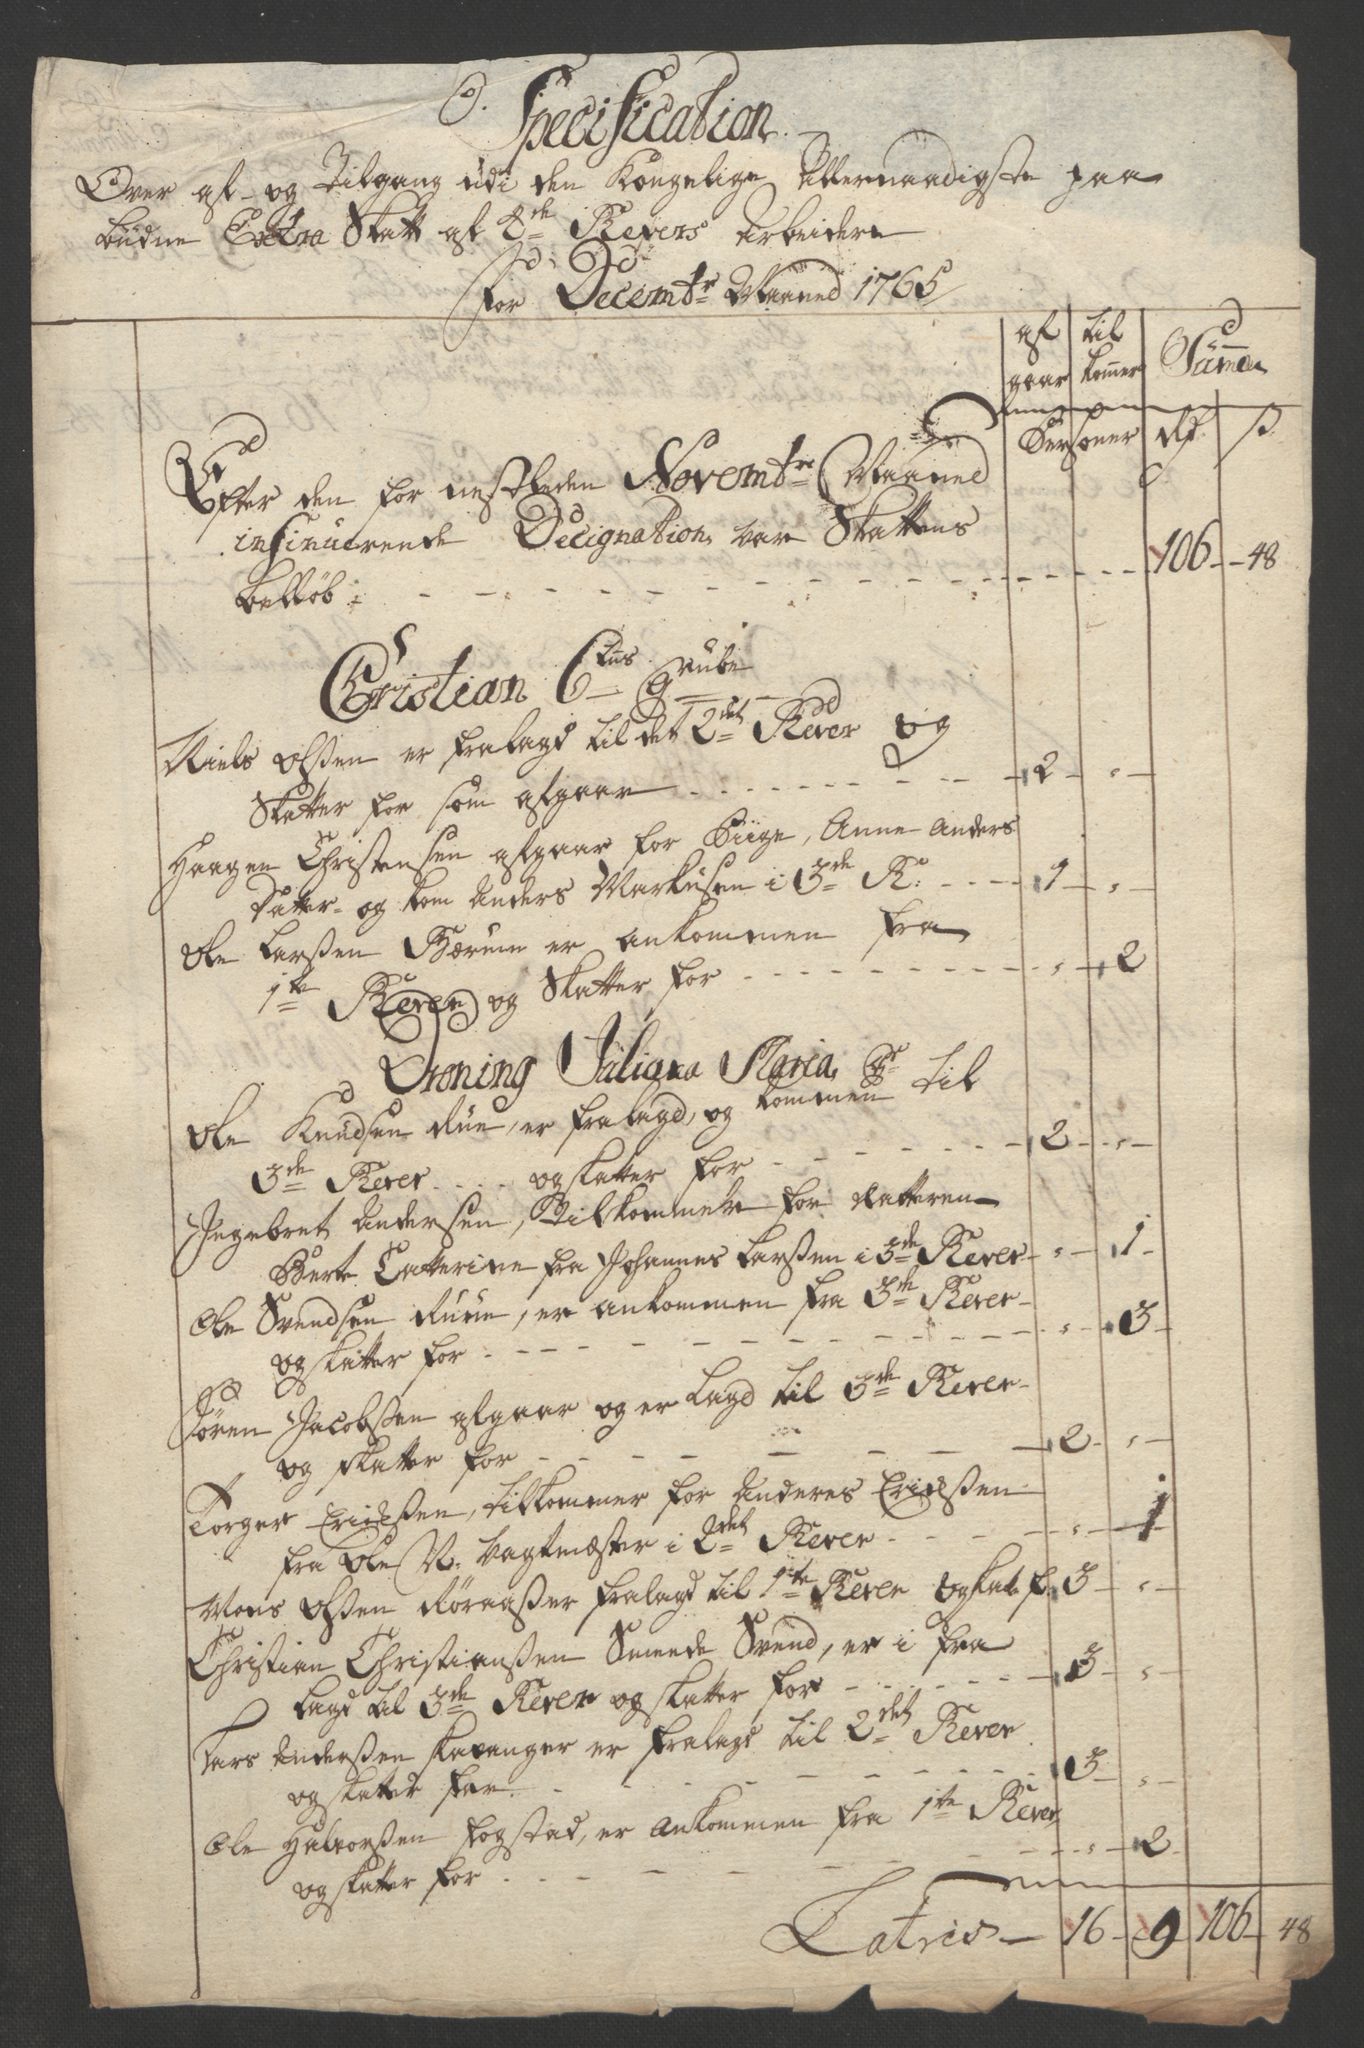 O. Specification
Over af- og Tilgang udi den Kongelige Allernaadigste paa
budne Extra Skatt af 4de Revers Arbeidere
for Decembr Maaned 1765
af gaar til kommer Summa
Personer Rd. s.
Efter den for nestleden Novembr Maaned
insinuerende Designation var Skattens
belløb - 106 - 48
Christian 6tus Grube
Niels Olßen er fralagd til det 2det Rever og
Skatter for som afgaar - 2 -
Haagen Christensen afgaar for Piige, Anne Anders
Datter og kom Anders Markusen i 3de R: - 1 -
Ole Larßen Bærum er ankommen fra
1te Rever og Skatter for - 2
Droning Juliana Maria Gr
Ole Knudsen Rue, er fralagd, og kommen til
3de Rever .... og skatter for - 2 -
Ingebret Andersen, Tilkommer for Datteren
Berte Catterine fra Johannes Larßen i 3de Rever - 1 -
Ole Svendsen Ruue, er ankommen fra 3de Rever
og skatter for - 3 -
Sören Jacobßen afgaar og er lagd til 3de Rever
og skatter for - 2 -
Torger Ericßen, tilkommer for Anderes Ericßen
fra Ole N. Vagtmæster i 2det Rever - 1
Mons Olßen Röraaßer fralagd til 1te Rever og skat. f. 3 -
Christian Christianßen Smede Svend, er i fra
lagd til 3de Rever og skatter for - 3 -
Lars Anderßen Stavanger er fralagd til 2det Rever
og skatter for - 3 -
Ole Halvorßen Fogstad, er Ankommen fra 1te Rever
og skatter for - 2 -
Latris - 16 - 9 106 - 48